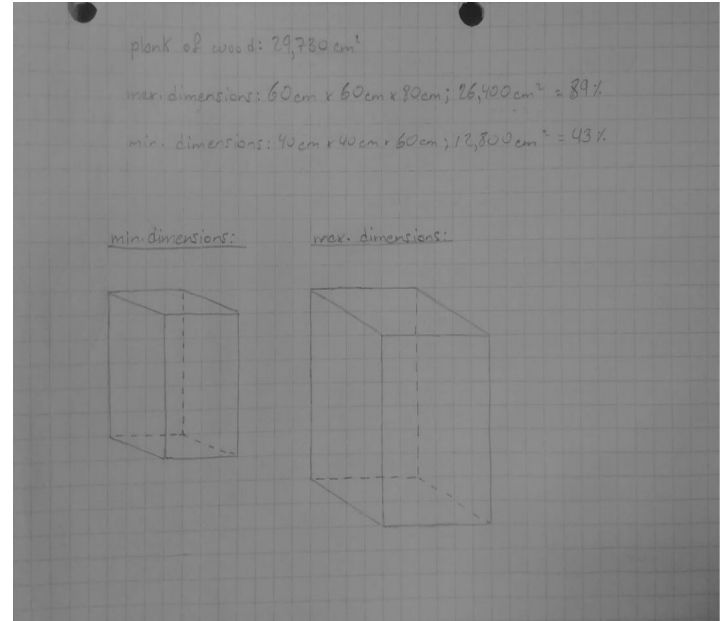 plank of wood: 29,730 cm²
max. dimensions: 60cm x 60cm x 80cm; 26,400 cm² = 89%
min. dimensions: 40cm x 40cm x 60cm; 12,800 cm² = 43%
min. dimensions:
max. dimensions: